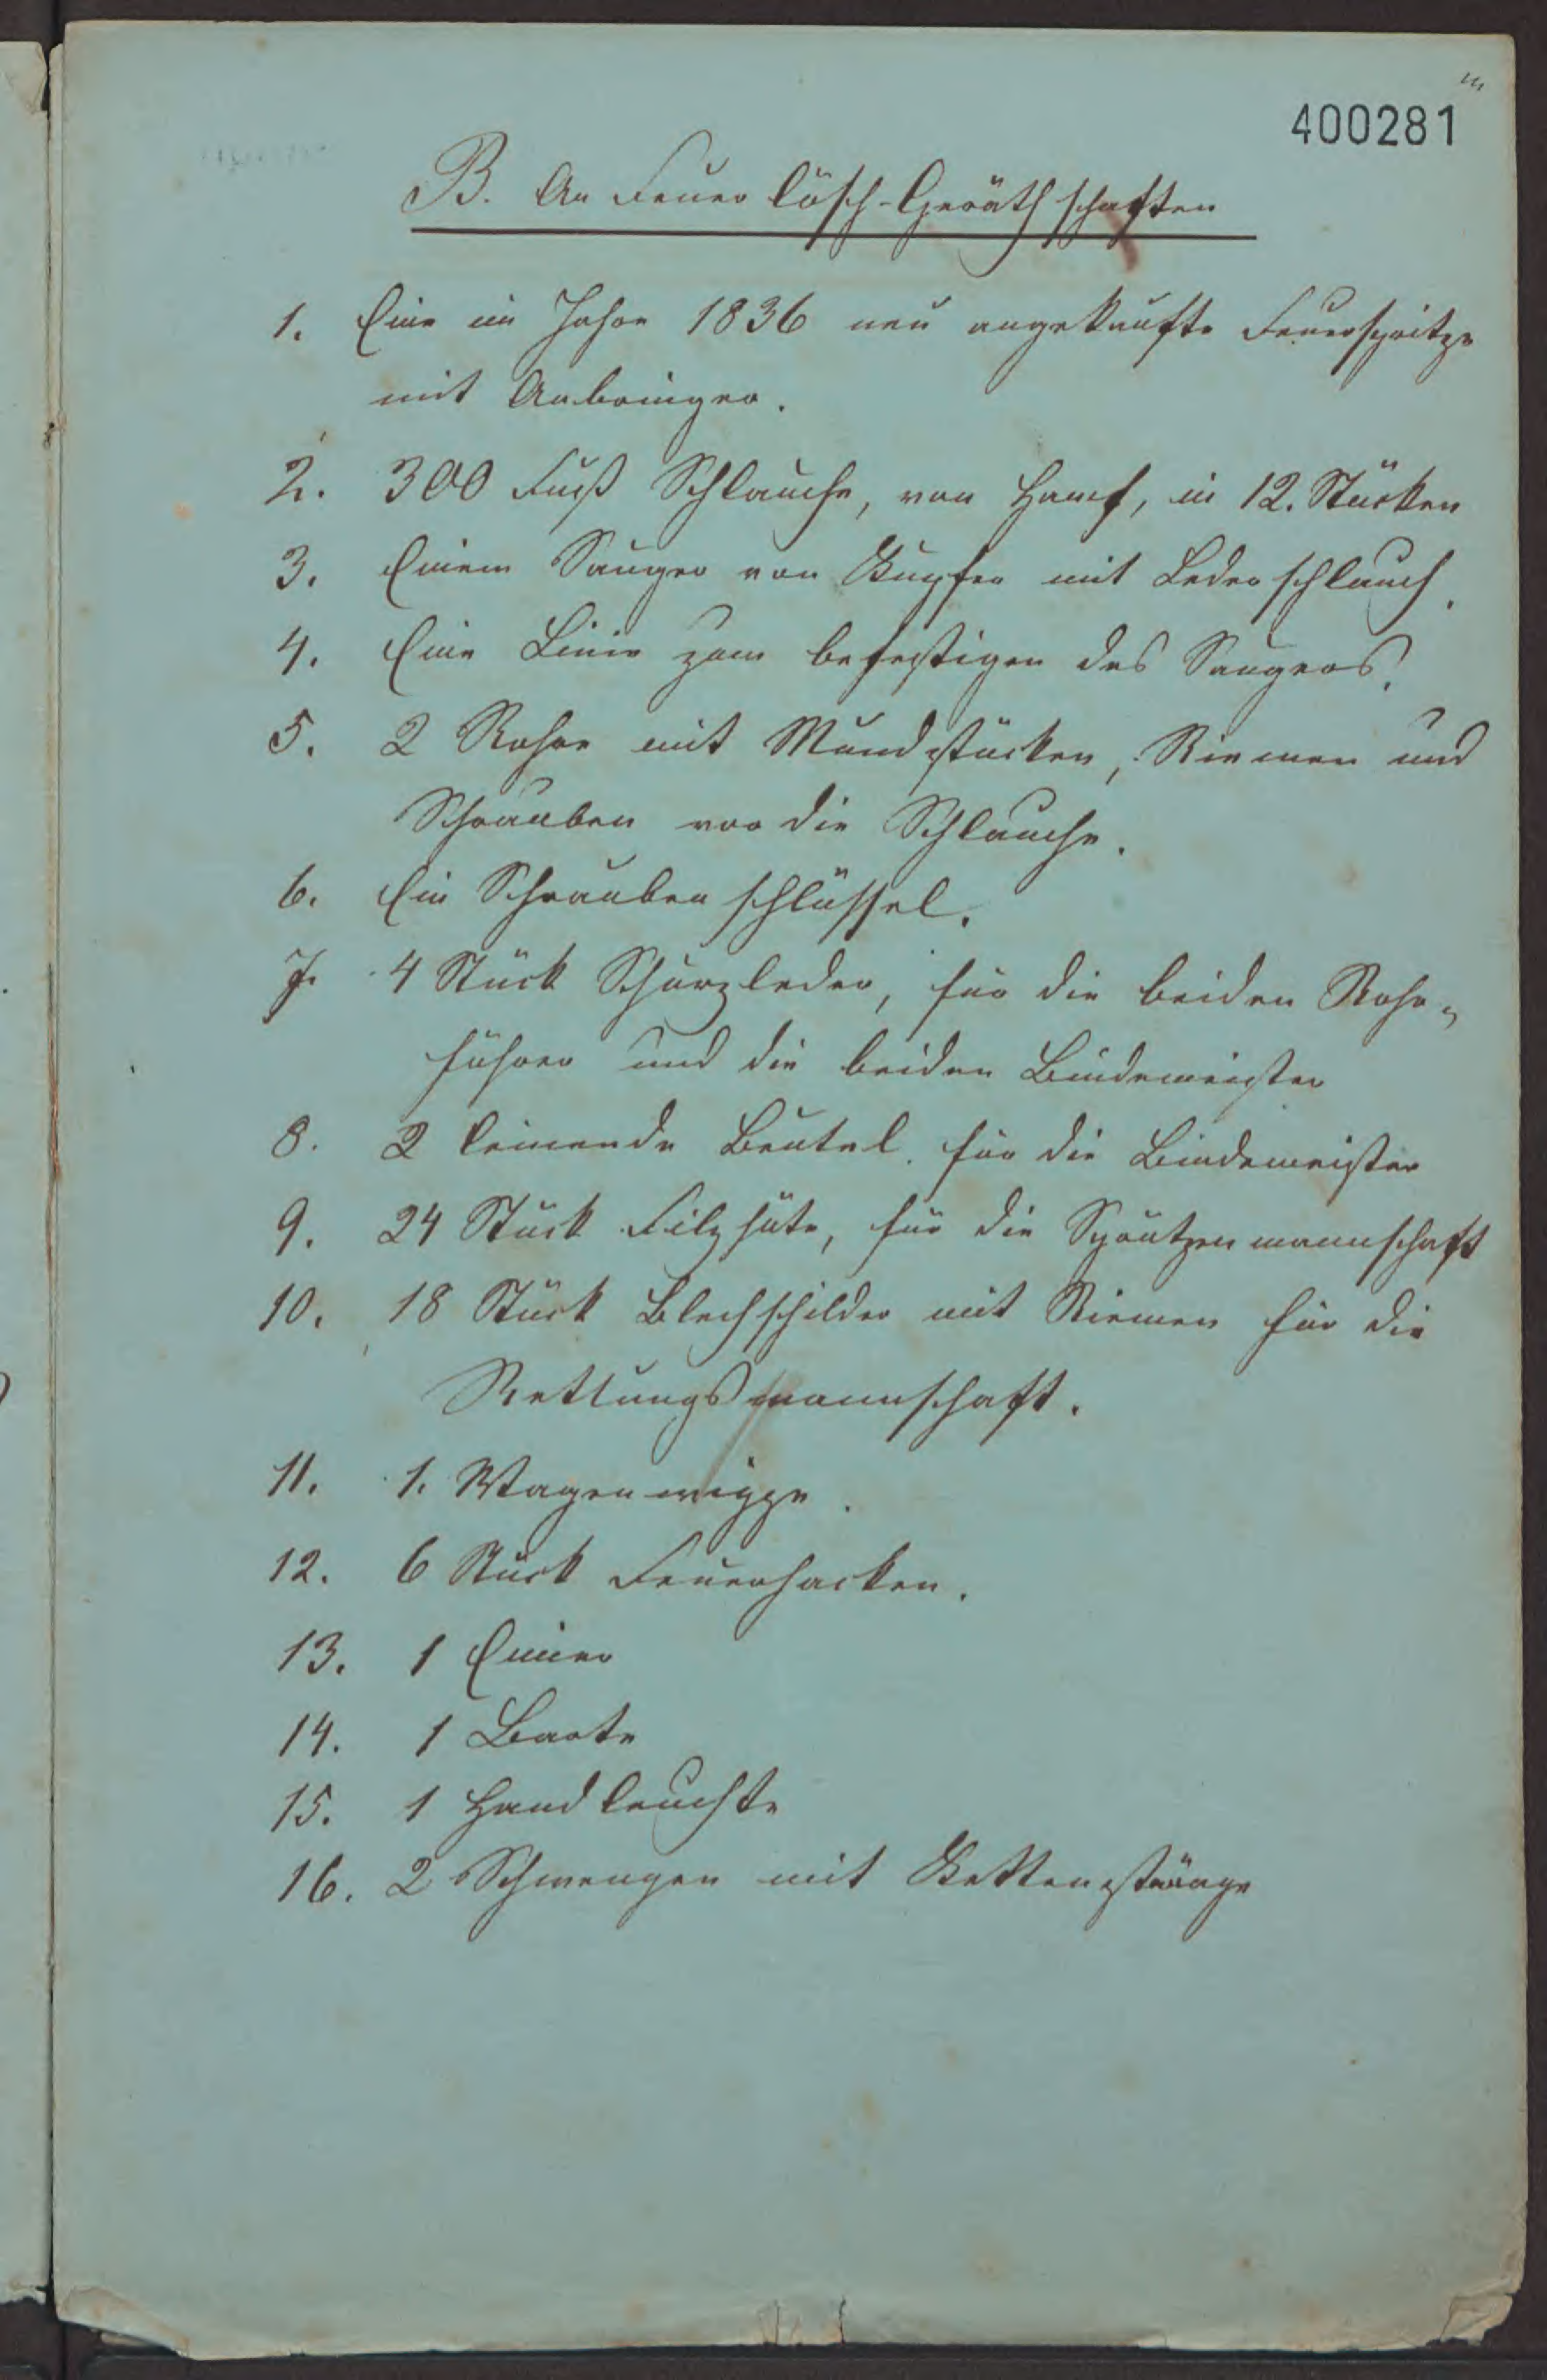 400281
B. An Feuer lösch-Geräthschaften
1. Eine im Jahre 1836 neu angekaufte Feuerspritze
mit Anbringer.
2. 300 Fuß Schlauche, von Hanf, in 12. Stücken
3. Einem Sauger von Kupfer mit Lederschlauch.
4. Eine Linie zum befestigen des Saugers.
5. 2 Rohre mit Mundstücken, Riemen und
Schrauben vor die Schlauche.
6. Ein Schraubenschlüssel.
7. 4 Stück Schurzleder, für die beiden Rohr-
führer und die beiden Bindemeister
8. 2 leinende Beutel für die Bindemeister
9. 24 Stück Filzhüte, für die Sprützenmannschaft
10. 18 Stück Blechschilder mit Riemen für die
Rettungsmannschaft.
11. 1. Wagenwippe.
12. 6 Stück Feuerhacken.
13. 1 Eimer
14. 1 Barte
15. 1 Handleuchte
16. 2 Schwengen mit Kettenstränge